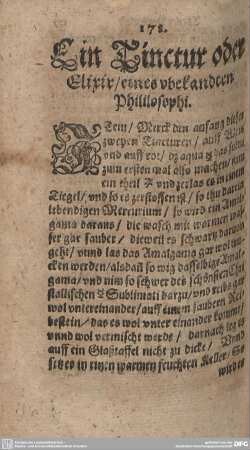 178.
Ein Tinctur oder
Elixir / eines vbekandten
Phililosophi.
Item / Merck den anfang dieser
zweyen Tincturen / auff
vnd auff rot / das
zum ersten mal also machen /
ein theil vnd zerlas es in einem
Tiegel / vnd so es zerflossen ist / so thu darein
lebendigen Mercurium / so wird ein Amal-
gama daraus / die wasch mit warmen was-
ser gar sauber / dieweil es schwartz daraus
geht / vnnd las das Amalgama gar wol
cken werden / alsdañ so wig dasselbige Amal-
gama / vnd nim so schwer des schönsten Chri-
stallischen Sublimati darzu / vnd reibs gar
wol vntereinander / auff einem saubern Rei-
bestein / das es wol vnter einander komme /
vnnd wol vermischt werde / darnach leg es
auff ein Glaßtaffel nicht zu dicke / Vnnd
setz es in einen warmen feuchten Keller / So
wird es